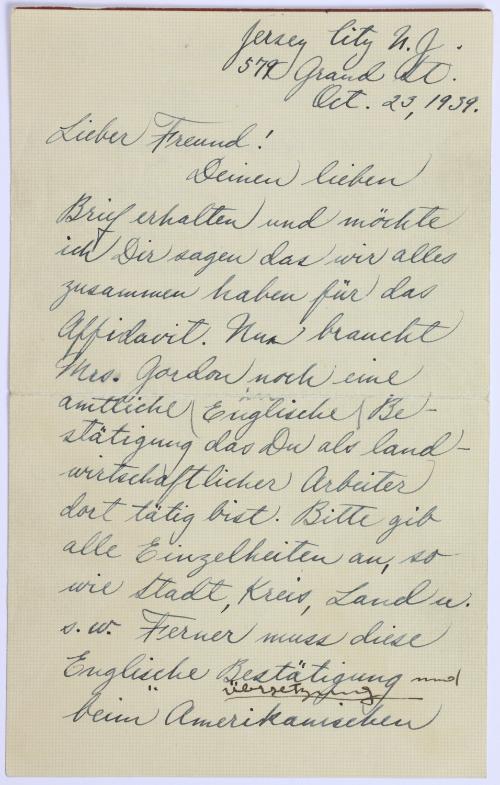 Jersey City N.J.
579 Grand St.
Oct. 23, 1939.
Lieber Freund!
Deinen lieben
Brief erhalten und möchte
ich Dir sagen das wir alles
zusammen haben für das
Affidavit. Nun braucht
Mrs. Gordon noch eine
amtliche (Englische) Be-
stätigung das Du als land-
wirtschaftlicher Arbeiter
dort tätig bist. Bitte gib
alle Einzelheiten an, so
wie Stadt, Kreis, Land u.
s. w. Ferner muss diese
Englische Bestätigung und
Übersetzung
beim Amerikanischen